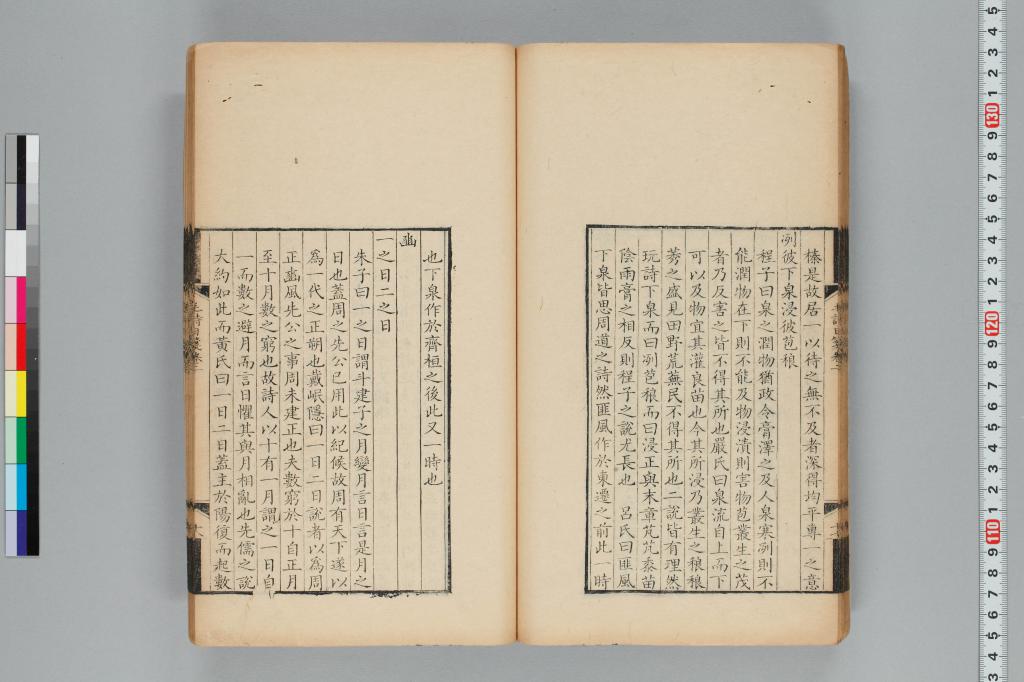 榛是故居一以待之無不及者深得均平專一之意
冽彼下泉浸彼苞稂
程子曰泉之潤物猶政令膏澤之及人泉寒冽則不
能潤物在下則不能及物浸漬則害物苞叢生之茂
者乃反害之皆不得其所也嚴氏曰泉流自上而下
可以及物宜其灌良苗也今其所浸乃叢生之稂稂
莠之盛見田野荒蕪民不得其所也二說皆有理然
玩詩下泉而曰冽苞稂而曰浸正與末章芃芃黍苗
陰雨膏之相反則程子之說尤長也 呂氏曰匪風
下泉皆思周道之詩然匪風作於東遷之前此一時
也下泉作於齊桓之後此又一時也
豳
一之日二之日
朱子曰一之日謂斗建子之月變月言日言是月之
日也蓋周之先公已用此以紀候故周有天下遂以
爲一代之正朔也戴岷隱曰一日二日說者以爲周
正豳風先公之事周未建正也夫數窮於十自正月
至十月數之窮也故詩人以十有一月謂之一日自
一而數之避月而言日懼其與月相亂也先儒之說
大約如此而黃氏曰一日二日蓋主於陽復而起數